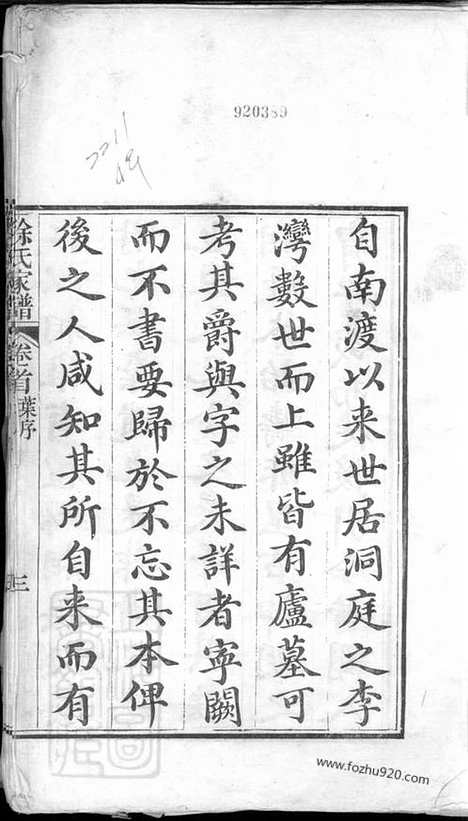 920389
2211
自南渡以来世居洞庭之李
灣數世而上雖皆有廬墓可
考其爵與字之未詳者寧闕
而不書要歸於不忘其本俾
後之人咸知其所自来而有
徐氏家譜 卷首 葉序 三
www.fozhu920.com